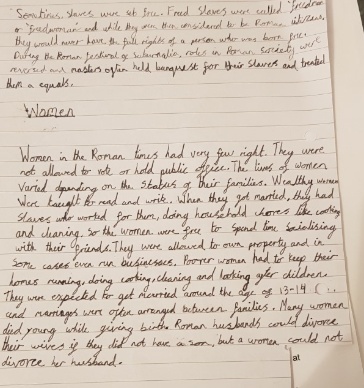 Sometimes, slaves were set free. Freed slaves were called 'freedman'
or 'freedwoman' and while they were then considered to be Roman citizens,
they would never have the full rights of a person who was born free.
During the Roman festival of Saturnalia, roles in Roman society were
reversed and masters often held banquest for their slaves and treated
them as equals.
Women
Women in the Roman times had very few right. They were
not allowed to vote or hold public office. The lives of women
varied depending on the status of their families. Wealthy women
were taught to read and write. When they got married, they had
slaves who worted for them, doing household chores like cooking
and cleaning. So the women were free to spend time socialising
with their friends. They were allowed to own property and in
some cases even run businesses. Poorer women had to keep their
homes running, doing cooking, cleaning and looking after children.
They were expected to get married around the age of 13-14 (
and marriages were often arranged between families. Many women
died young while giving birth. Roman husbands could divorce
their wives if they did not have a son, but a women could not
divorce her husband.
at